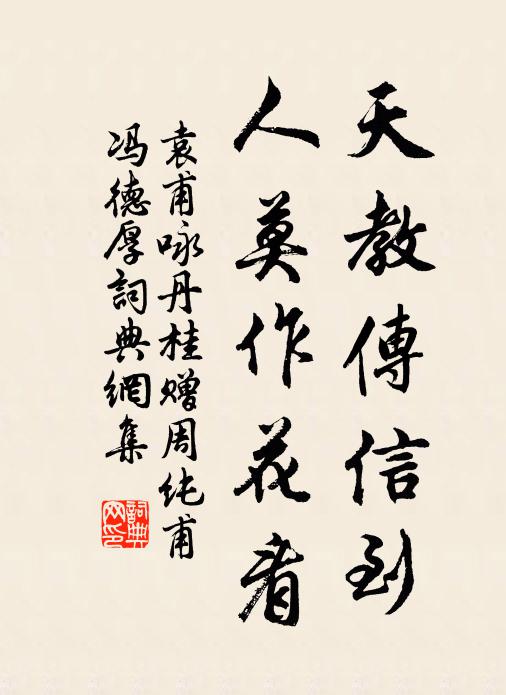 天教傳信到
人莫作花看
袁甫咏丹桂赠周纯甫
冯德厚詞典網集
詞典网印